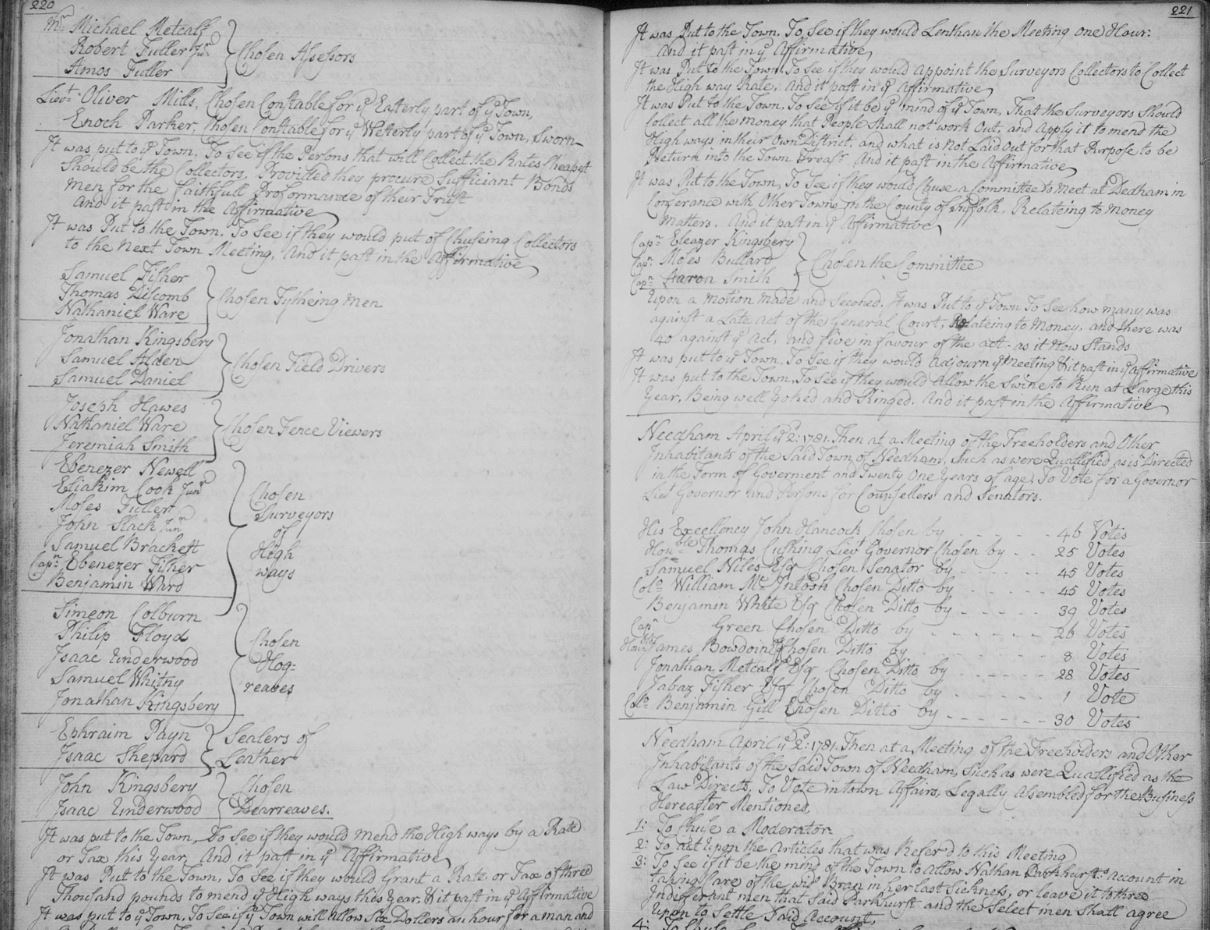 220
Mr. Michael Metcalf
Robert Fuller Junr
Amos Fuller
Chosen Assessors
Lievt. Oliver Mills, Chosen Constable for ye Easterly part of ye Town,
Enoch Parker, Chosen Constable for ye Westerly part of ye Town, Sworn
It was put to ye Town, To See if the Persons that will Collect the Rates Cheapest
Should be the Collectors, Provided they procure Sufficiant Bonds
men for the Faithfull Proformance of their Trust
And it past in the Affirmative
It was Put to the Town, To See if they would put of Chuseing Collectors
to the Next Town Meeting, And it past in the Affirmative
Samuel Fisher
Thomas Discomb
Nathaniel Ware
Chosen Tytheing men
Jonathan Kingsbery
Samuel Alden
Samuel Daniel
Chosen Field Drivers
Joseph Hawes
Nathaniel Ware
Jeremiah Smith
Chosen Fence Viewers
Ebenezer Newell
Eliakim Cook Junr
Moses Fuller
John Slack Junr
Samuel Brackett
Capn Ebenezer Fisher
Benjamin Ward
Chosen
Surveyors
of
High
ways
Simeon Colburn
Philip Floyd
Isaac Underwood
Samuel Whitny
Jonathan Kingsbery
Chosen
Hog-
reaves
Ephraim Payn
Isaac Shepard
Sealers of
Leather
John Kingsbery
Isaac Underwood
Chosen
Dearreaves.
It was put to the Town, To See if they would mend the High ways by a Rate
or Tax this Year, And it past in ye Affirmative
It was Put to the Town, To See if they would Grant a Rate or Tax of three
Thousand pounds to mend ye High ways this Year, & it past in ye Affirmative
It was put to ye Town, To See if ye Town will Allow Six Dollars an hour for a man and
221
It was Put to the Town, To See if they would Lenthan the Meeting one Hour:
And it past in ye Affirmative,
It was Put to the Town, To See if they would Appoint the Surveyors Collectors to Collect
the High way Rates, And it past in ye Affirmative
It was Put to the Town, To See if it be ye mind of ye Town, That the Surveyors Should
Collect all the money that People Shall not work Out, and Apply it to mend the
High ways in their Own District, and what is Not Laid Out for that Purpose to be
Return into the Town Treasr. And it past in the Affirmative
It was Put to the Town, To See if they would Chuse a Committee to Meet at Dedham in
Conferance with Other Towns, In the County of Suffolk, Relateing to Money
Matters, And it past in ye Affirmative
Capn Eleazer Kingsbery
Capn Moses Bullard
Capn Aaron Smith
Chosen the Committee
Upon a motion made and Seconed, It was Put to ye Town To See how many was
against a Late Act of the General Court, Relateing to Money, and there was
40 against ye Act, and five in favour of the Act: as it Now Stands
It was put to ye Town, To See if they would Adjourn ye Meeting & it past in ye affirmative
It was put to the Town, To See if they would Allow the Swine to Run at Large this
Year, Being well Yoked and Ringed, And it past in the Affirmative
Needham April ye 2: 1781, Then at a Meeting of the Freeholders and Other
Inhabitants of the Said Town of Needham, Such as were Quallified as is Directed
in the Form of Goverment and Twenty One Years of age, To Vote for a Governor
Lievt Governor and Persons for Counsellers and Senators.
His Excellency John Hancock Chosen by 46 Votes
Honble Thomas Cushing Lievt Governor Chosen by 25 Votes
Samuel Niles Esqr Chosen Senator by 45 Votes
Coln William McIntosh Chosen Ditto by 45 Votes
Benjamin White Esqr Chosen Ditto by 39 Votes
Capn Green Chosen Ditto by 26 Votes
Honble James Bowdoin Chosen Ditto by 8 Votes
Jonathan Metcalf Esqr Chosen Ditto by 28 Votes
Jabaz Fisher Esqr Chosen Ditto by 1 Vote
Coln Benjamin Gill Chosen Ditto by 30 Votes
Needham April ye 2: 1781, Then at a Meeting of the Freeholders and Other
Inhabitants of the Said Town of Needham, Such as were Quallified as the
Law Directs, To Vote in Town Affairs, Legally Assembled for the Business
Hereafter Mentiones,
1: To Chuse a Moderator
2: To act upon the Articles that was Refer'd to this Meeting
3: To See if it be the mind of the Town to Allow Nathan Parkhurst's Account in
takeing Care of the wid: in her last Sickness, or leave it to three
Indeferant men that Said Parkhurst and the Select men Shall agree
upon to Settle Said Account,
4: To Chuse